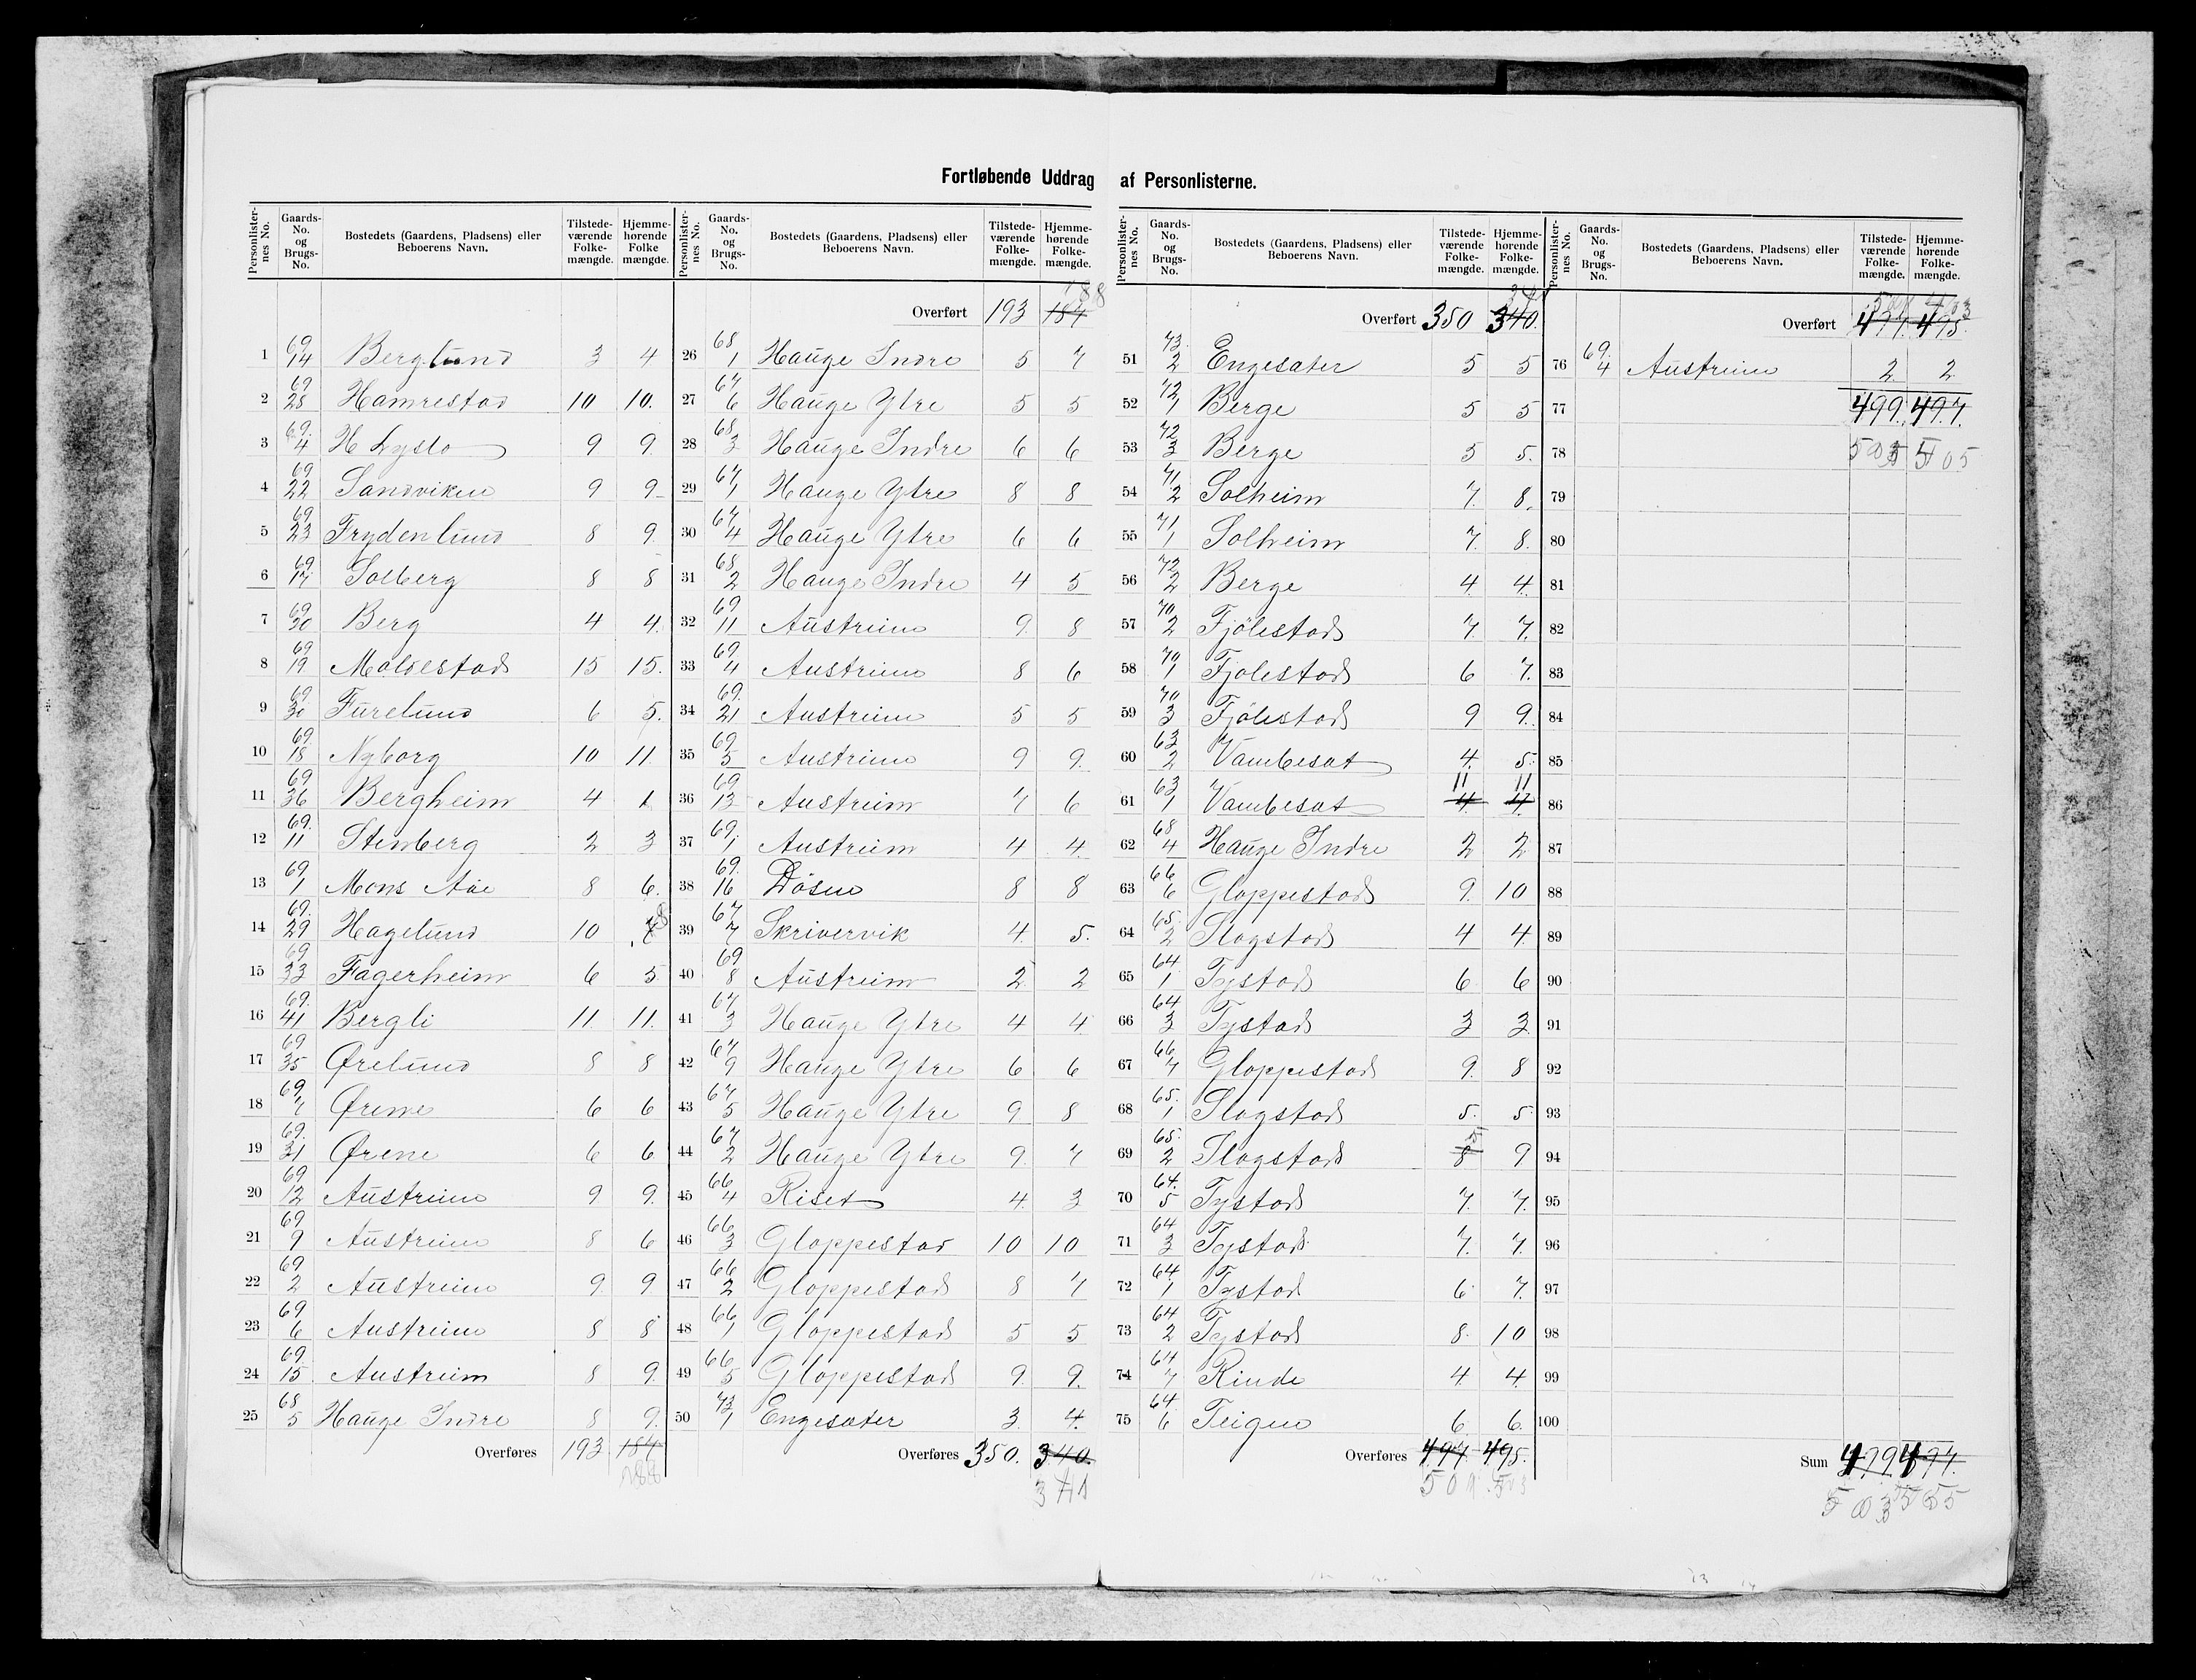 Fortløbende Uddrag af Personlisterne.
Personlister-nes No. | Gaards-No. og Brugs-No. | Bostedets (Gaardens, Pladsens) eller Beboerens Navn. | Tilstede-værende Folke-mængde. | Hjemme-hørende Folke mængde.
1 69/14 Berglund 3 4
2 69/28 Hamrestad 10 10.
3 69/4 H Lyslo 9 9
4 69/22 Sandviken 9 9
5 69/23 Frydenlund 8 9
6 69/17 Solberg 8 8
7 69/20 Berg 4 4.
8 69/19 Moldestad 15 15.
9 69/30 Furelund 6 5.
10 69/18 Nyborg 10 11
11 69/36 Bergheim 4 1
12 69/11 Stenberg 2 3
13 69/1 Mons Aae 8 6.
14 69/29 Hagelund 10 8
15 69/33 Fagerheim 6 5
16 69/41 Bergli 11 11.
17 69/35 Ørelund 8 8
18 69/7 Ørene 6 6
19 69/31 Ørene 6 6
20 69/12 Austreim 9 9.
21 69/9 Austreim 8 6
22 69/2 Austreim 9 9
23 69/6 Austreim 8 8
24 69/15 Austreim 8 9
25 68/5 Hauge Indre 8 9.
Overføres 193 184
188
Personlister-nes No. | Gaards-No. og Brugs-No. | Bostedets (Gaardens, Pladsens) eller Beboerens Navn. | Tilstede-værende Folke-mængde. | Hjemme-hørende Folke-mængde.
188
Overført 193 184
26 68/1 Hauge Indre 5 7
27 67/6 Hauge Ytre 5 5
28 68/3 Hauge Indre 6 6
29 67/1 Hauge Ytre 8 8
30 67/4 Hauge Ytre 6 6
31 68/2 Hauge Indre 4 5
32 69/11 Austreim 9 8
33 69/4 Austreim 8 6
34 69/21 Austreim 5 5
35 69/5 Austreim 9 9.
36 69/13 Austreim 7 6
37 69/1 Austreim 4 4.
38 69/16 Døsen 8 8
39 67/7 Skrivervik 4 5.
40 69/8 Austreim 2 2
41 67/3 Hauge Ytre 4 4
42 67/9 Hauge Ytre 6 6
43 67/5 Hauge Ytre 9 8
44 67/2 Hauge Ytre 9 7
45 66/4 Riset 4. 3
46 66/3 Gloppestad 10 10
47 66/2 Gloppestad 8 7
48 66/1 Gloppestad 5 5
49 66/5 Gloppestad 9. 9.
50 73/1 Engesæter 3 4.
Overføres 350. 340.
Personlister-nes No. | Gaards-No. og Brugs-No. | Bostedets (Gaardens, Pladsens) eller Beboerens Navn. | Tilstede-værende Folke-mængde. | Hjemme-hørende Folke-mængde.
Overført 350 340.
51 73/2 Engesæter 5 5
52 72/1 Berge 5 5
53 72/3 Berge 5 5.
54 71/2 Solheim 7. 8.
55 71/1 Solheim 7. 8.
56 72/2 Berge 4 4.
57 70/2 Fjölestad 7. 7.
58 70/1 Fjolestad 6 7.
59 70/3 Fjölestad 9 9.
60 63/2 Vambeset 4. 5.
11 11
61 63/1 Vambeset 4. 4.
62 68/4 Hauge Indre 2 2
63 66/6 Gloppestad 9. 10
64 65/2 Slagstad 4 4.
65 64/1 Tystad 6 6
66 64/3 Tystad 3 3
67 66/7 Gloppestad 9. 8
68 65/1 Slagstad 5. 5.
69 65/2 Slagstad 8 9
70 64/5 Tystad 7. 7.
71 64/3 Tystad 7. 7.
72 64/1 Tystad 6 7.
73 64/2 Tystad 8. 10
74 64/7 Rinde 4. 4.
75 64/6 Teigen 6 6.
Overføres 497. 495.
503
Personlister-nes No. | Gaards-No. og Brugs-No. | Bostedets (Gaardens, Pladsens) eller Beboerens Navn. | Tilstede-værende Folke-mængde. | Hjemme-hørende Folke-mængde.
Overført 497. 495.
76 69/4 Austreim 2 2
77 499. 497.
78 505
79
80
81
82
83
84
85
86
87
88
89
90
91
92
93
94
95
96
97
98
99
100
Sum 499 497.